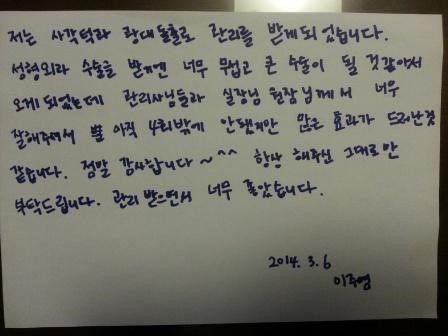 저는 사각턱과 광대돌출로 관리를 받게되었습니다.
성형외과 수술을 받기엔 너무 무섭고 큰 수술이 될 것같아서
오게되었는데 관리사님들과 실장님 원장님께서 너무
잘해주셔서 아직 4회밖에 안됐지만 많은 효과가 드러난것
같습니다. 정말 감사합니다~^^ 항상 해주신 그대로만
부탁드립니다. 관리 받으면서 너무 좋았습니다.
2014. 3. 6
이주영